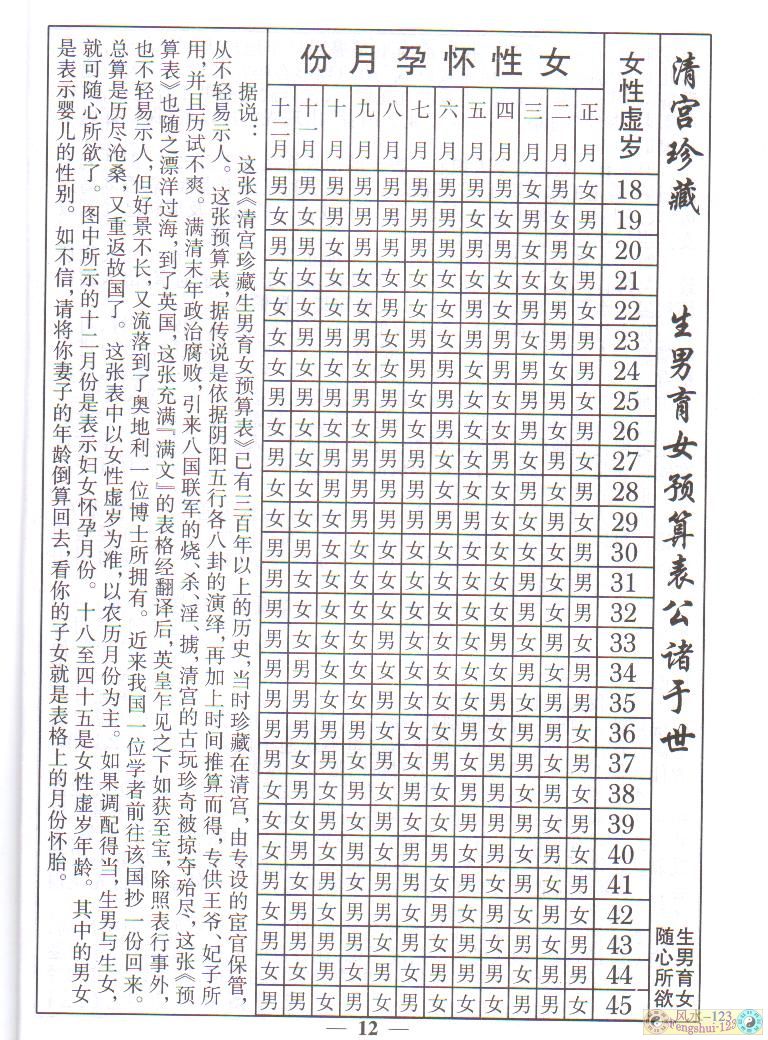 清宫珍藏 生男育女预算表公诸于世
生男育女
随心所欲
女性虚岁 女性怀孕月份
正月 二月 三月 四月 五月 六月 七月 八月 九月 十月 十一月 十二月
18 女 男 女 男 男 男 男 男 男 男 男 男
19 男 女 男 女 女 男 男 男 男 男 女 女
20 女 男 女 男 男 男 男 男 男 女 男 男
21 男 女 女 女 女 女 女 女 女 女 女 女
22 女 男 男 女 男 女 女 男 女 女 女 女
23 男 男 女 男 男 女 男 女 男 男 男 女
24 男 女 男 男 女 男 男 女 女 女 女 女
25 女 男 男 女 女 男 女 男 男 男 男 男
26 男 女 男 女 女 男 女 男 女 女 女 女
27 女 男 女 男 女 女 男 男 男 男 女 男
28 男 女 男 女 女 女 男 男 男 男 女 女
29 女 男 女 女 男 男 男 男 男 女 女 女
30 男 女 女 女 女 女 女 女 女 女 男 男
31 男 女 男 女 女 女 女 女 女 女 女 男
32 男 女 男 女 女 女 女 女 女 女 女 男
33 女 男 女 男 女 女 女 男 女 女 女 男
34 男 女 男 女 女 女 女 女 女 女 男 男
35 男 男 女 男 女 女 女 男 女 女 男 男
36 女 男 男 女 男 女 女 女 男 男 男 男
37 男 女 男 男 女 男 女 男 女 男 女 男
38 女 男 女 男 男 女 男 女 男 女 男 女
39 男 女 男 男 男 女 女 男 女 男 女 女
40 女 男 女 男 女 男 男 女 男 女 男 女
41 男 女 男 女 男 女 男 男 女 男 女 男
42 女 男 女 男 女 男 女 男 男 女 男 女
43 男 女 男 女 男 女 男 女 男 男 男 男
44 男 男 女 男 男 男 女 男 女 男 女 女
45 女 男 男 女 女 女 男 女 男 女 男 男
据说：这张《清宫珍藏生男育女预算表》已有三百年以上的历史，当时珍藏在清宫，由专设的宦官保管，
从不轻易示人。这张预算表，据传说是依据阴阳五行各八卦的演绎，再加上时间推算而得，专供王爷、妃子所
用，并且历试不爽。满清末年政治腐败，引来八国联军的烧、杀、淫、掳，清宫的古玩珍奇被掠夺殆尽，这张《预
算表》也随之漂洋过海，到了英国，这张充满『满文』的表格经翻译后，英皇乍见之下如获至宝，除照表行事外，
也不轻易示人，但好景不长，又流落到了奥地利一位博士所拥有。近来我国一位学者前往该国抄一份回来。
总算是历尽沧桑，又重返故国了。这张表中以女性虚岁为准，以农历月份为主。如果调配得当，生男与生女，
就可随心所欲了。图中所示的十二月份是表示妇女怀孕月份。十八至四十五是女性虚岁年龄。其中的男女
是表示婴儿的性别。如不信，请将你妻子的年龄倒算回去，看你的子女就是表格上的月份怀胎。
— 12 —
风水-123
Fengshui-123